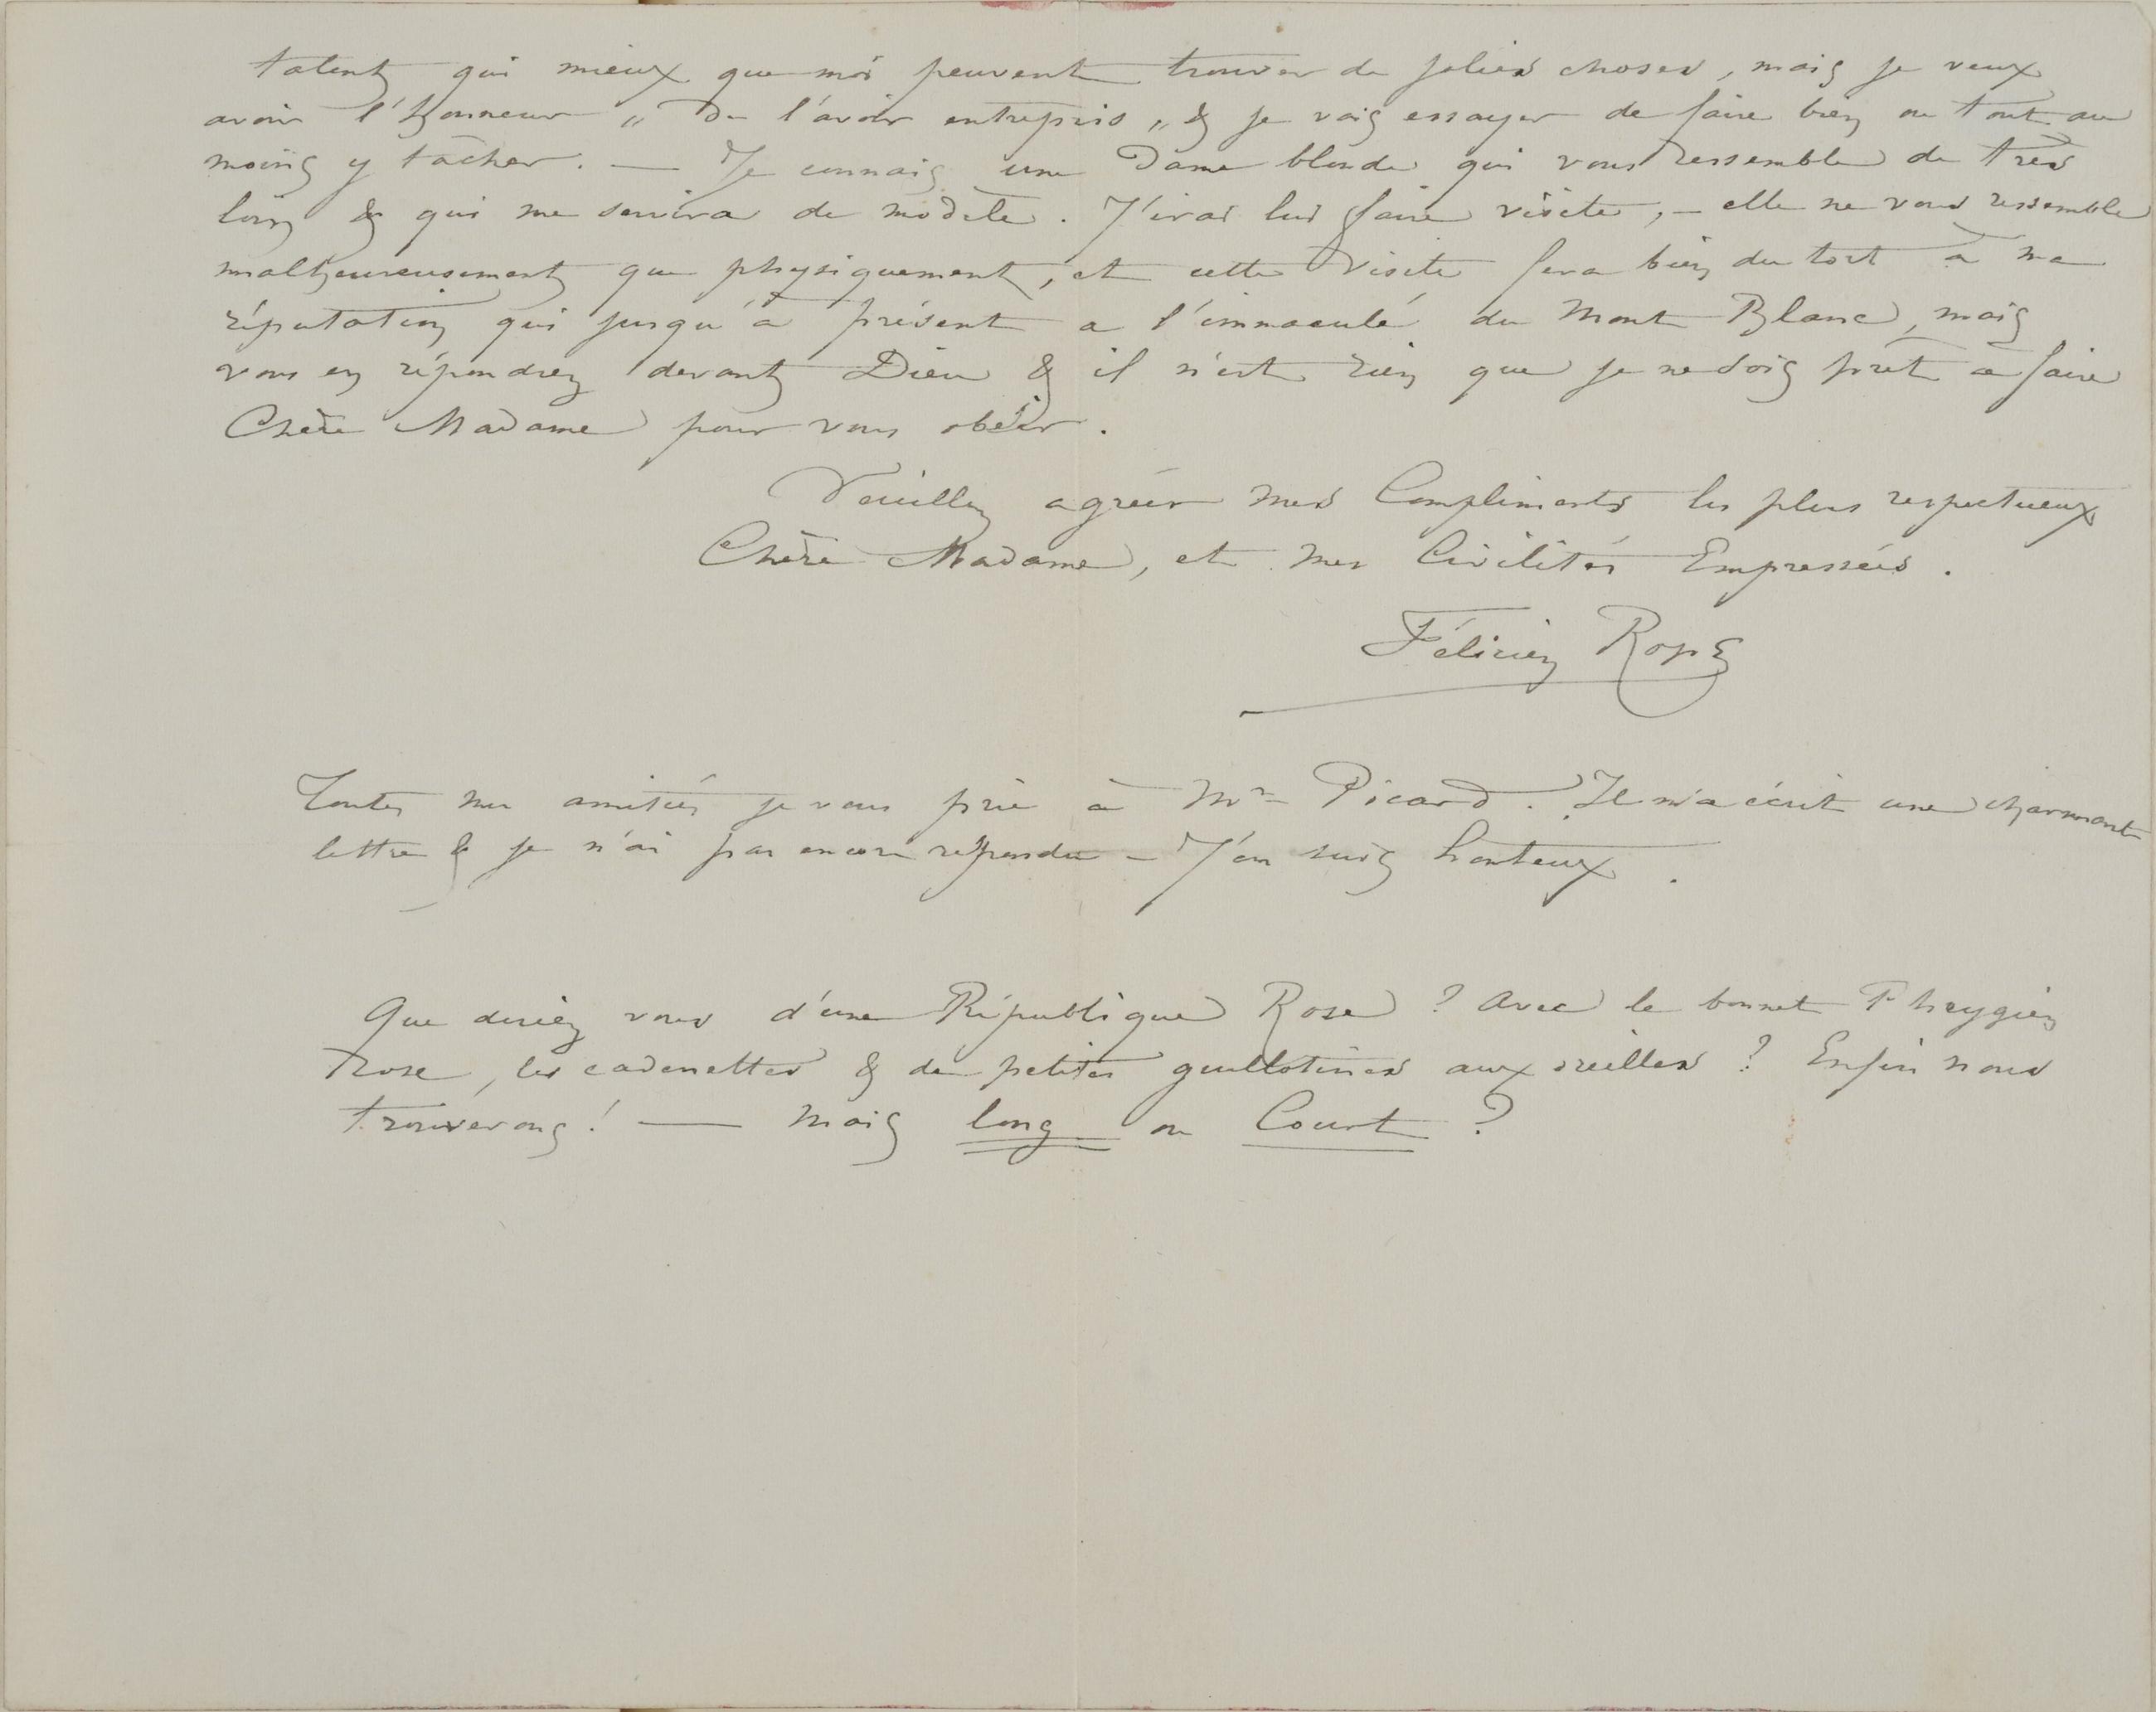 talent qui mieux que moi peuvent trouver de jolies choses, mais je veux
avoir l'honneur „ de l'avoir entrepris „ & je vais essayer de faire bien ou tout au
moins y tâcher. — Je connais une Dame blonde qui vous ressemble de très
loin & qui me servira de modèle. J'irai lui faire visite, – elle ne vous ressemble
malheureusement que physiquement, et cette visite fera bien du tort à ma
réputation qui jusqu'à présent a l'immaculé du Mont Blanc, mais
vous en répondrez devant Dieu & il n'est rien que je ne sois prêt à faire
Chère Madame pour vous obéir.
Veuillez agréer mes Compliments les plus respectueux
Chère Madame, et mes Civilités Empressées.
Félicien Rops
Toutes mes amitiés je vous prie à Mr Picard. Il m'a écrit une charmante
lettre & je n'ai pas encore répondu – J'en suis honteux.
Que diriez vous d'une République Rose ? Avec le bonnet Phrygien
rose, les cadenettes & de petites guillotines aux oreilles ? Enfin nous
trouverons ! — Mais long ou Court ?